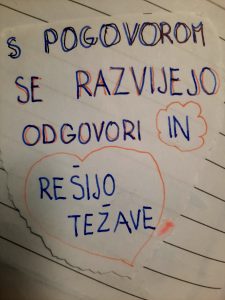 S POGOVOROM
SE RAZVIJEJO
ODGOVORI IN
REŠIJO
TEŽAVE